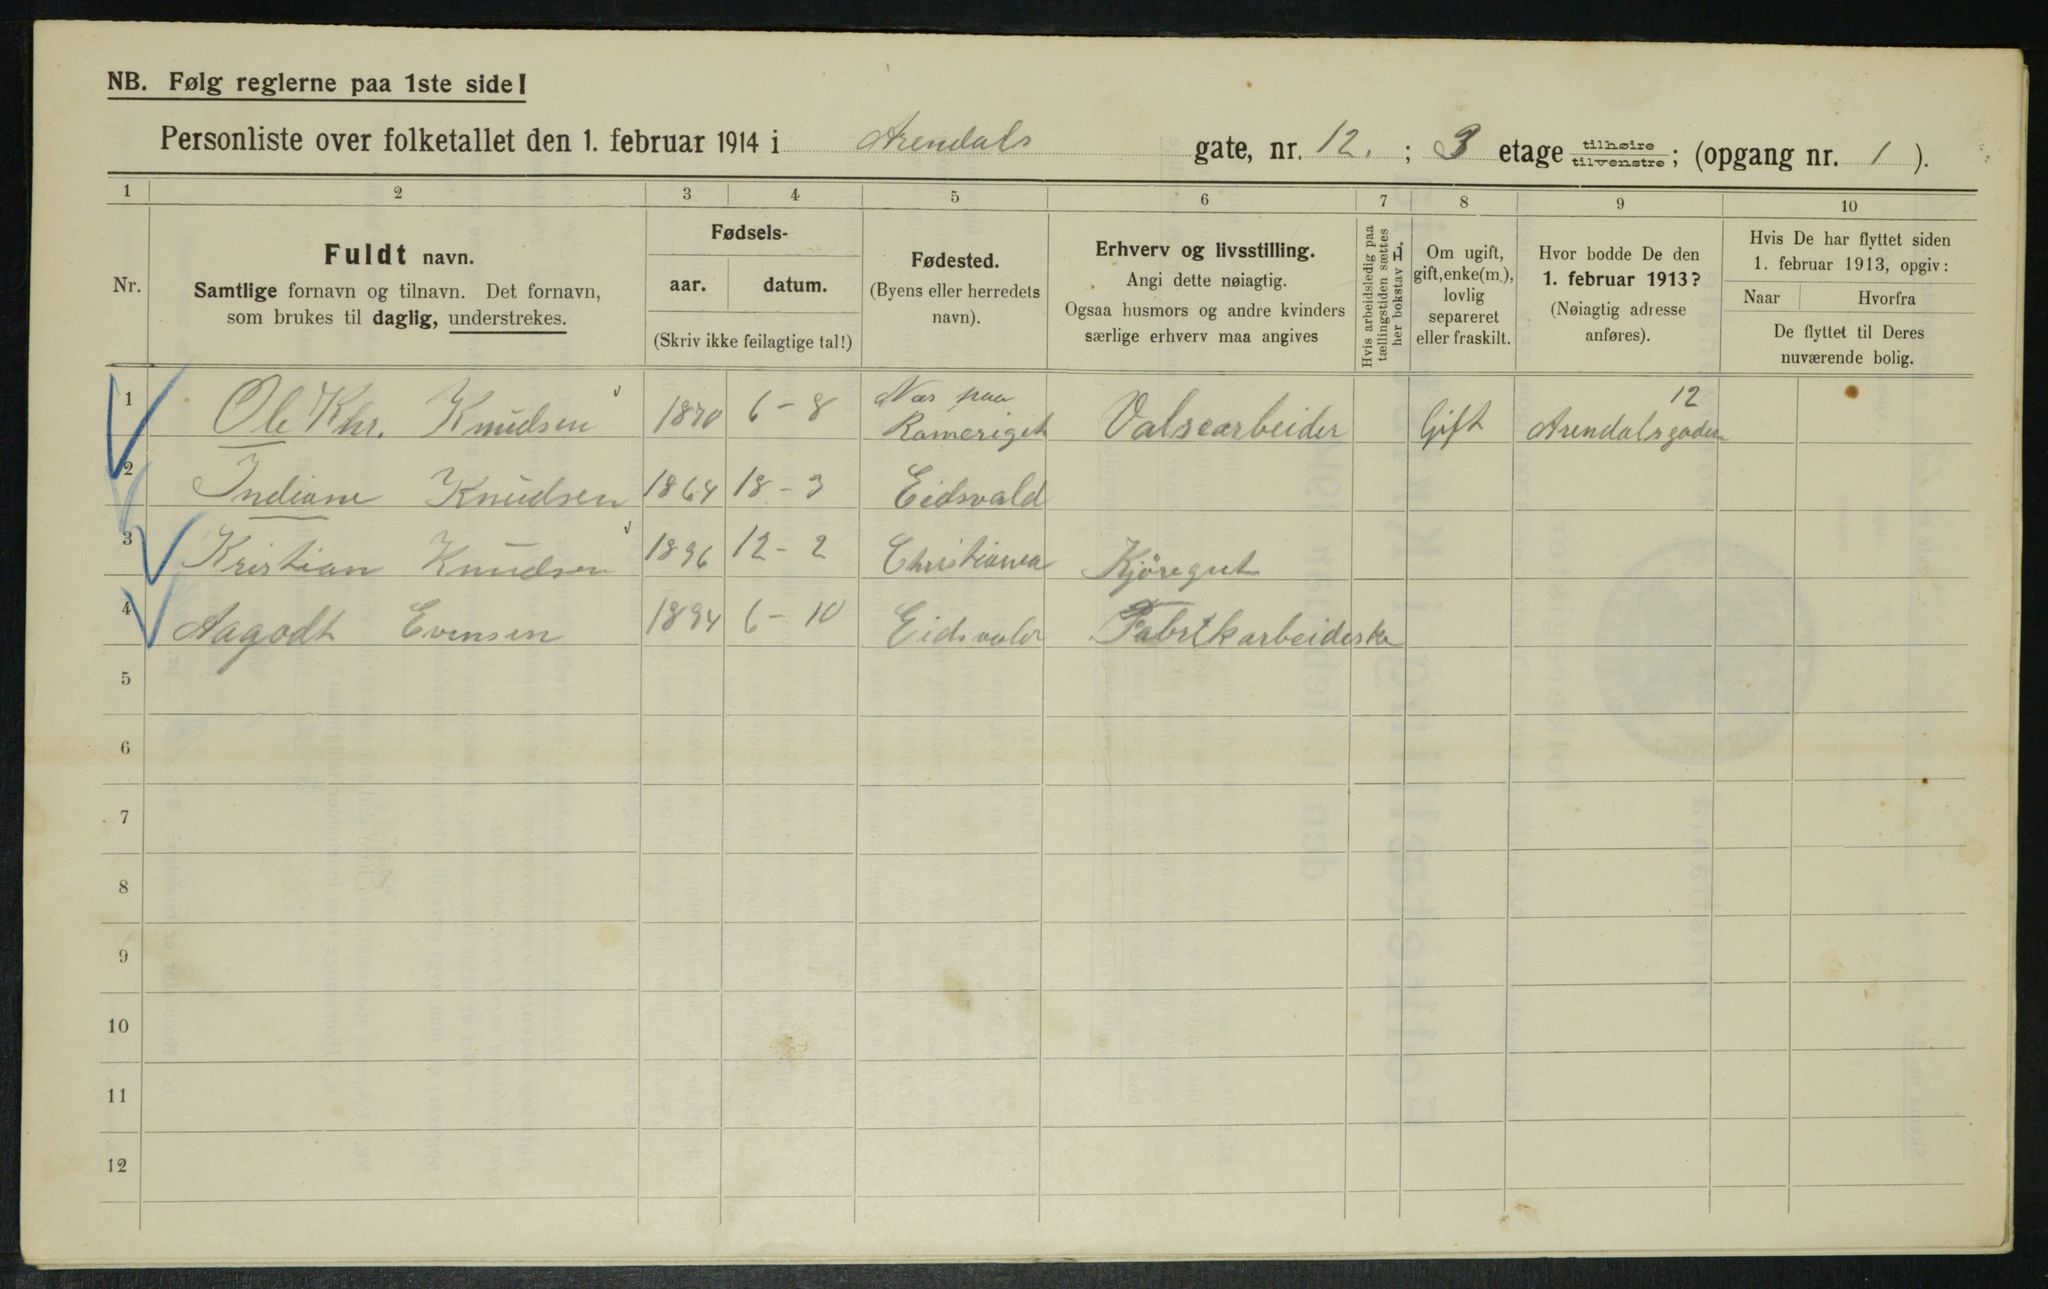 NB. Følg reglerne paa 1ste side!
Personliste over folketallet den 1. februar 1914 i Arendals gate, nr. 12. ; 3 etage tilhøire tilvenstre ; (opgang nr. 1 ).
1 2 3 4 5 6 7 8 9 10
Nr.
Fuldt navn.
Samtlige fornavn og tilnavn. Det fornavn,
som brukes til daglig, understrekes.
Fødsels-
aar. datum.
(Skriv ikke feilagtige tal!)
Fødested.
(Byens eller herredets
navn).
Erhverv og livsstilling.
Angi dette nøiagtig.
Ogsaa husmors og andre kvinders
særlige erhverv maa angives
Hvis arbeidsledig paa
tællingstiden sættes
her bokstav L.
Om ugift,
gift, enke(m.),
lovlig
separeret
eller fraskilt.
Hvor bodde De den
1. februar 1913?
(Nøiagtig adresse
anføres).
Hvis De har flyttet siden
1. februar 1913, opgiv:
Naar Hvorfra
De flyttet til Deres
nuværende bolig.
1 Ole Khr. Knudsen 1870 6-8 Næs paa Romeriget Valsearbeider Gift Arendalsgaden 12
2 Indiane Knudsen 1864 18-3 Eidsvold
3 Kristian Knudsen 1896 12-2 Christiania Kjöregut
4 Aagodt Evensen 1894 6-10 Eidsvold Fabrikarbeiderske
5
6
7
8
9
10
11
12